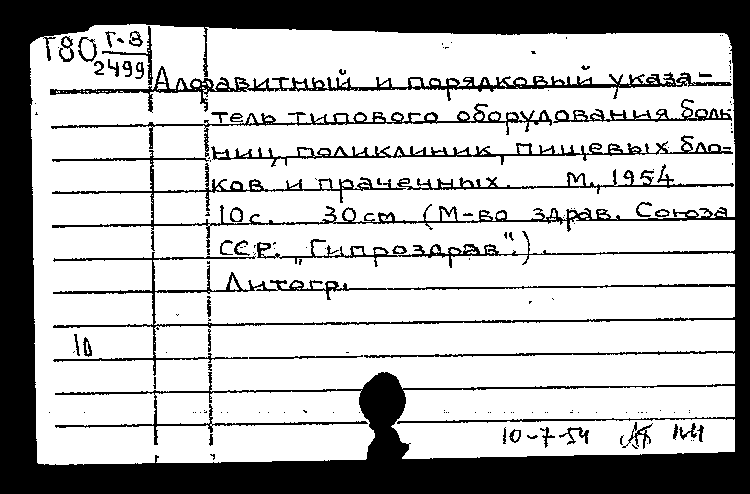 Т80 Г-8
2499
Алфавитный и порядковый указа-
тель типового оборудования боль
ниц, поликлиник, пищевых бло-
ков и прачечных. М., 1954
10с. 30см (М-во здрав. Союза
ССР. "Гипроздрав".).
Литогр.
10
10-7-54